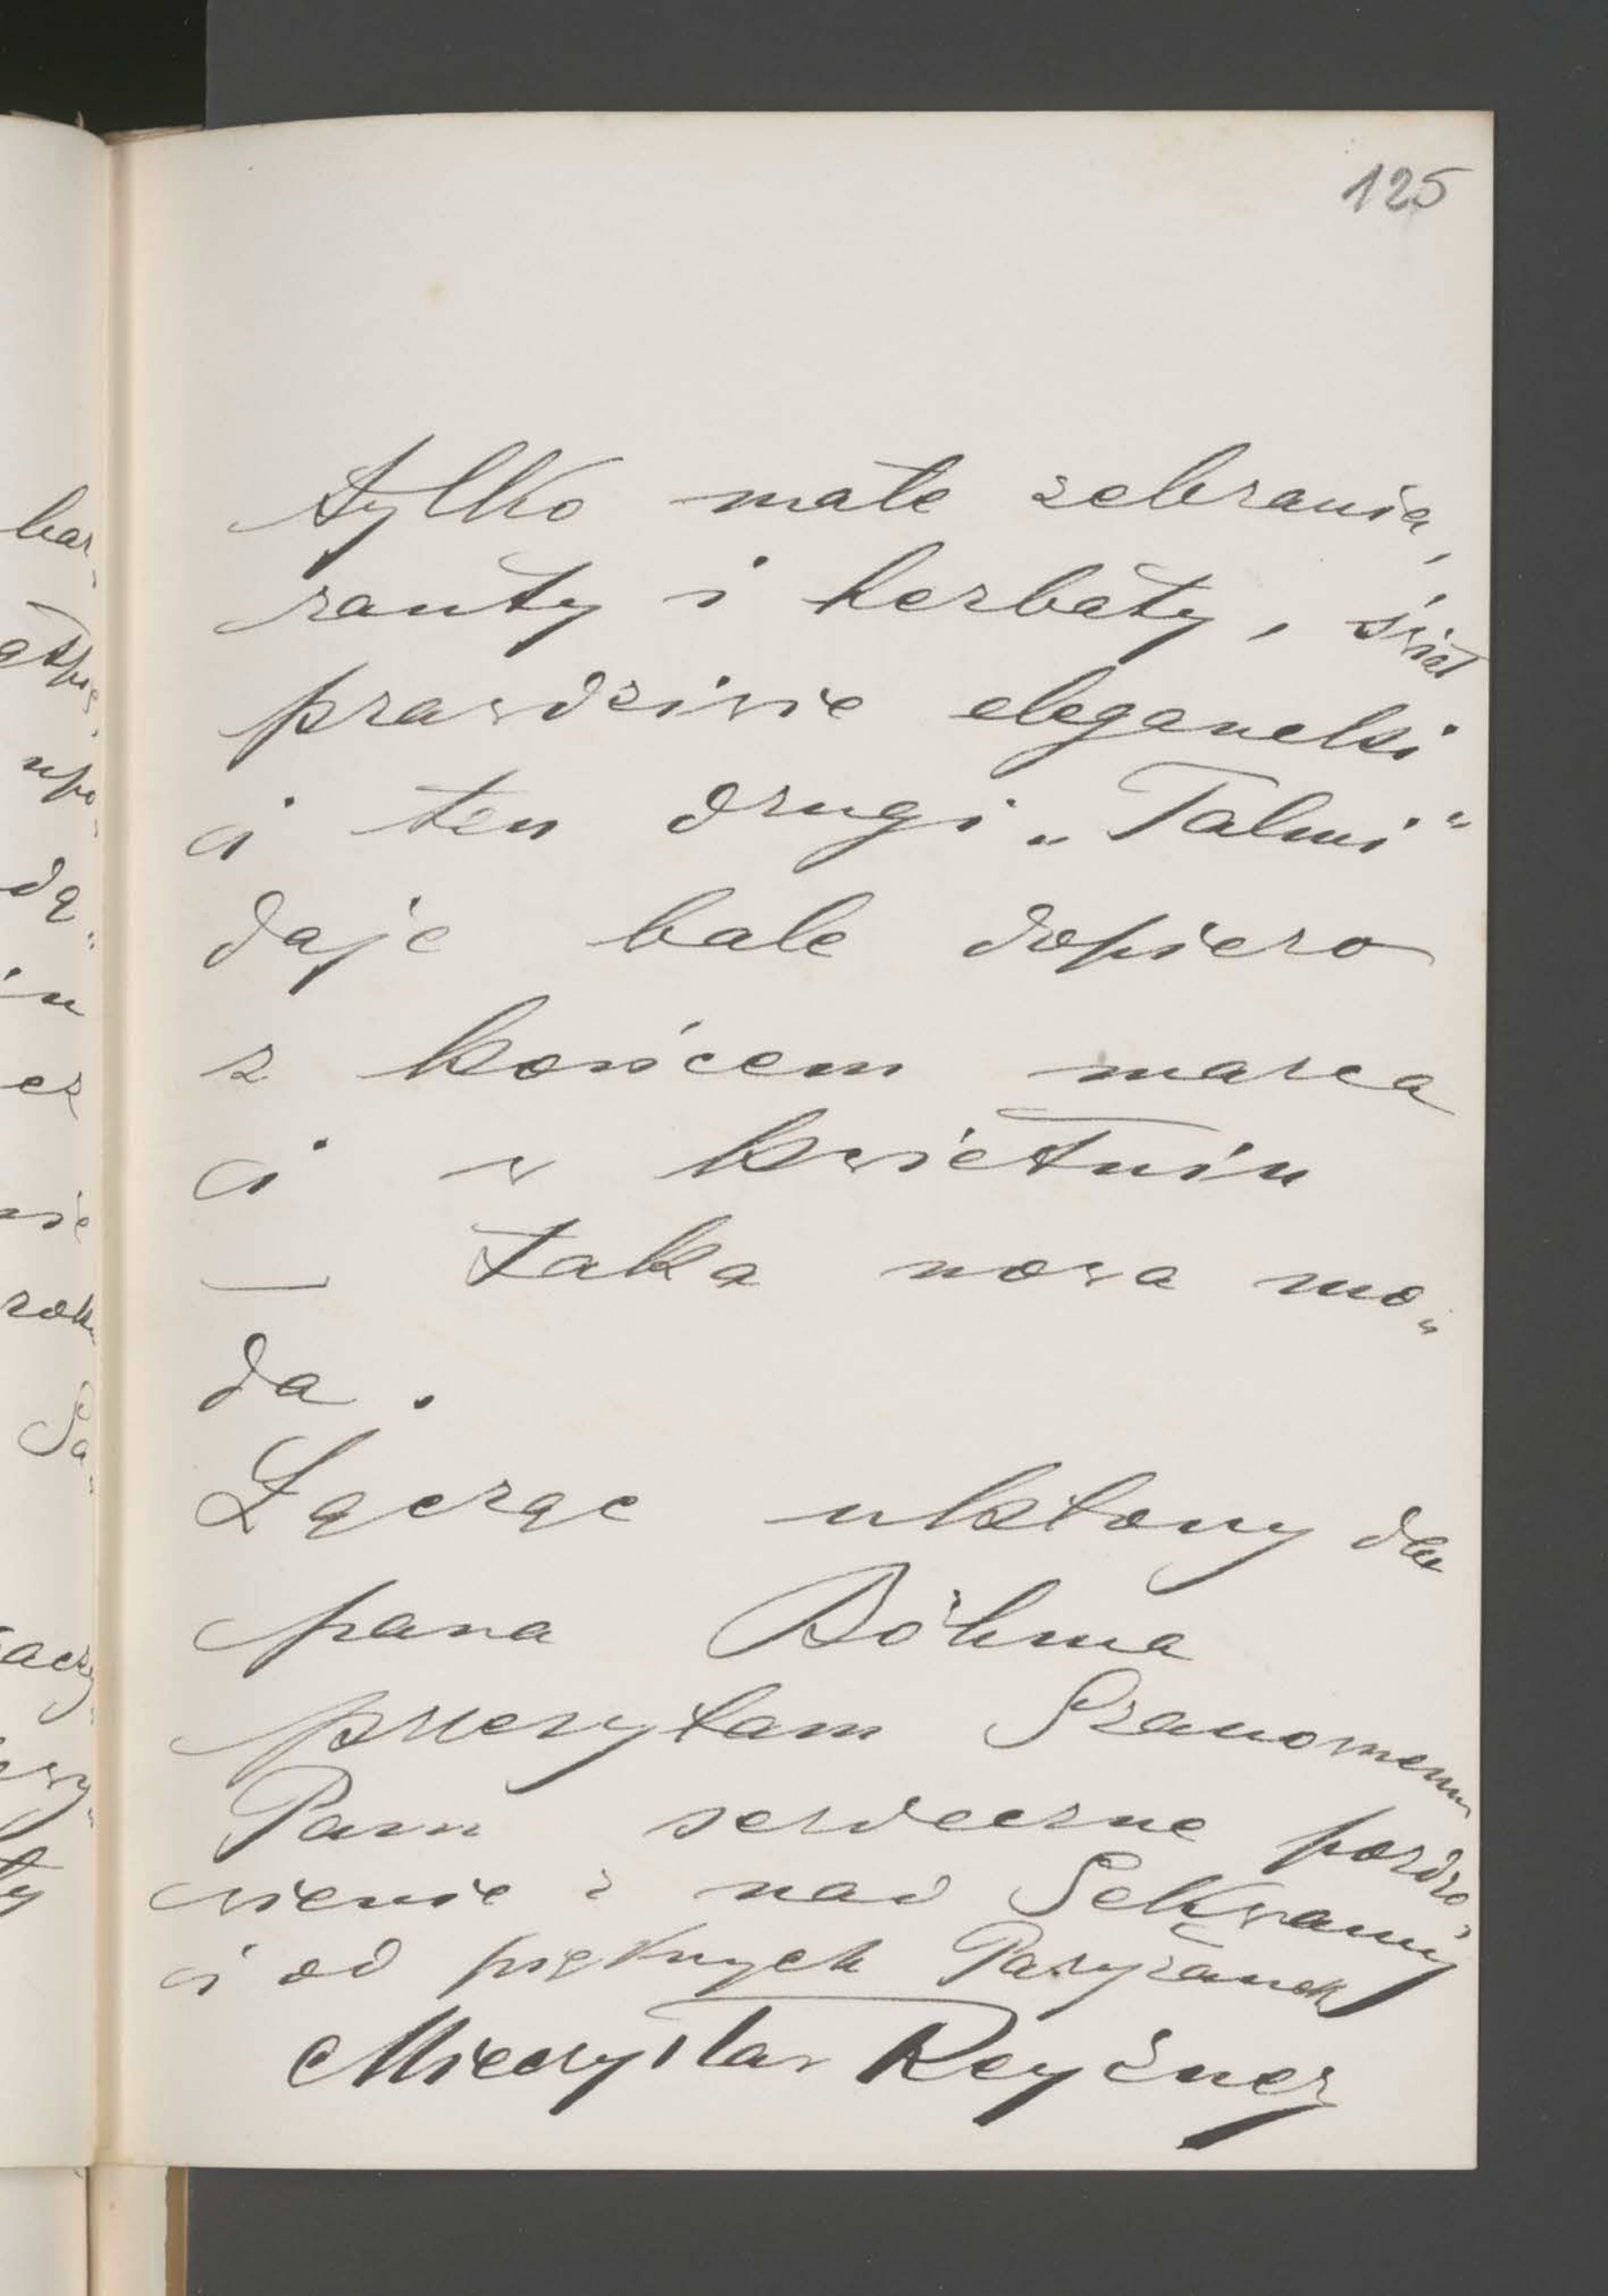 125
tylko małe zebrania,
rauty i herbaty, świat
prawdziwie elegancki
i ten drugi „Talmi"
daje bale dopiero
z końcem marca
i w kwietniu
— taka nowa mo„
da.
Łącząc ukłony dla
pana Böhma
przesyłam Szanownemu
Panu serdeczne pozdro„
wienie z nad Sekwany
i od pięknych Paryżanek
Mieczysław Reyzner